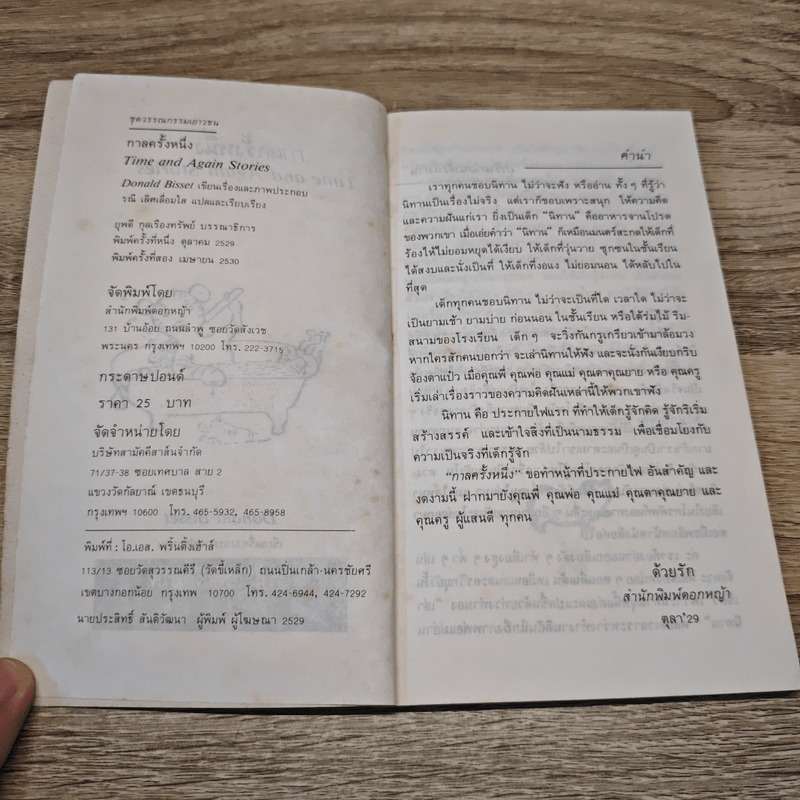 ชุดวรรณกรรมเยาวชน
กาลครั้งหนึ่ง
Time and Again Stories
Donald Bisset เขียนเรื่องและภาพประกอบ
รณี เลิศเลื่อมใส แปลและเรียบเรียง
ยุพดี กุลเรืองทรัพย์ บรรณาธิการ
พิมพ์ครั้งที่หนึ่ง ตุลาคม 2529
พิมพ์ครั้งที่สอง เมษายน 2530
จัดพิมพ์โดย
สำนักพิมพ์ดอกหญ้า
131 บ้านอ้อย ถนนลำพู ซอยวัดสังเวช
พระนคร กรุงเทพฯ 10200 โทร. 222-3715
กระดาษปอนด์
ราคา 25 บาท
จัดจำหน่ายโดย
บริษัทสามัคคีสาส์นจำกัด
71/37-38 ซอยเทศบาล สาย 2
แขวงวัดกัลยาณ์ เขตธนบุรี
กรุงเทพฯ 10600 โทร. 465-5932, 465-8958
พิมพ์ที่ : โอ.เอส. พริ้นติ้งเฮ้าส์
113/13 ซอยวัดสุวรรณคีรี (วัดขี้เหล็ก) ถนนปิ่นเกล้า-นครชัยศรี
เขตบางกอกน้อย กรุงเทพ 10700 โทร. 424-6944, 424-7292
นายประสิทธิ์ สันติวัฒนา ผู้พิมพ์ ผู้โฆษณา 2529
คำนำ
เราทุกคนชอบนิทาน ไม่ว่าจะฟัง หรืออ่าน ทั้ง ๆ ที่รู้ว่า
นิทานเป็นเรื่องไม่จริง แต่เราก็ชอบเพราะสนุก ให้ความคิด
และความฝันแก่เรา ยิ่งเป็นเด็ก “นิทาน” คืออาหารจานโปรด
ของพวกเขา เมื่อเอ่ยคำว่า “นิทาน” ก็เหมือนมนตร์สะกดให้เด็กที่
ร้องไห้ไม่ยอมหยุดได้เงียบ ให้เด็กที่วุ่นวาย ซุกซนในชั้นเรียน
ได้สงบและนั่งเป็นที่ ให้เด็กที่งอแง ไม่ยอมนอน ได้หลับไปใน
ที่สุด
เด็กทุกคนชอบนิทาน ไม่ว่าจะเป็นที่ใด เวลาใด ไม่ว่าจะ
เป็นยามเช้า ยามบ่าย ก่อนนอน ในชั้นเรียน หรือใต้ร่มไม้ ริม-
สนามของโรงเรียน เด็ก ๆ จะวิ่งกันกรูเกรียวเข้ามาล้อมวง
หากใครสักคนบอกว่า จะเล่านิทานให้ฟัง และจะนั่งกันเงียบกริบ
จ้องตาแป๋ว เมื่อคุณพี่ คุณพ่อ คุณแม่ คุณตาคุณยาย หรือ คุณครู
เริ่มเล่าเรื่องราวของความคิดฝันเหล่านี้ให้พวกเขาฟัง
นิทาน คือ ประกายไฟแรก ที่ทำให้เด็กรู้จักคิด รู้จักริเริ่ม
สร้างสรรค์ และเข้าใจสิ่งที่เป็นนามธรรม เพื่อเชื่อมโยงกับ
ความเป็นจริงที่เด็กรู้จัก
“กาลครั้งหนึ่ง” ขอทำหน้าที่ประกายไฟ อันสำคัญ และ
งดงามนี้ ฝากมายังคุณพี่ คุณพ่อ คุณแม่ คุณตาคุณยาย และ
คุณครู ผู้แสนดี ทุกคน
ด้วยรัก
สำนักพิมพ์ดอกหญ้า
ตุลา'29